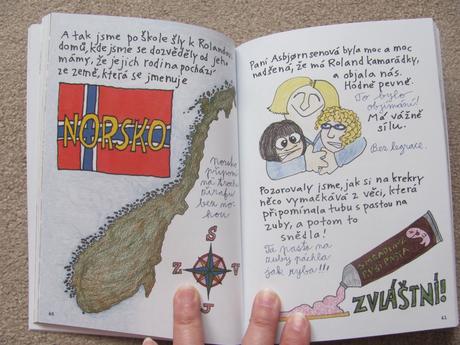 A tak jsme po škole šly k Rolandovi
domů, kde jsme se dozvěděly od jeho
mámy, že jejich rodina pochází
ze země, která se jmenuje
NORSKO
Norsko
připom
na trochu
žirafu
bez no-
hou
S
Z
V
J
40
Paní Asbjørnsenová byla moc a moc
nadšená, že má Roland kamarádky,
a objala nás.
Hodně pevně.
To bylo
objímání!
Má vážně
sílu.
Bez legrace.
Pozorovaly jsme, jak si na krekry
něco vymačkává z věci, která
připomínala tubu s pastou na
zuby, a potom to
snědla!
Ta pasta na
zuby páchla
jak ryba!!!
SMRADLAVÁ
RYBÍ PASTA
ZVLÁŠTNÍ!
41